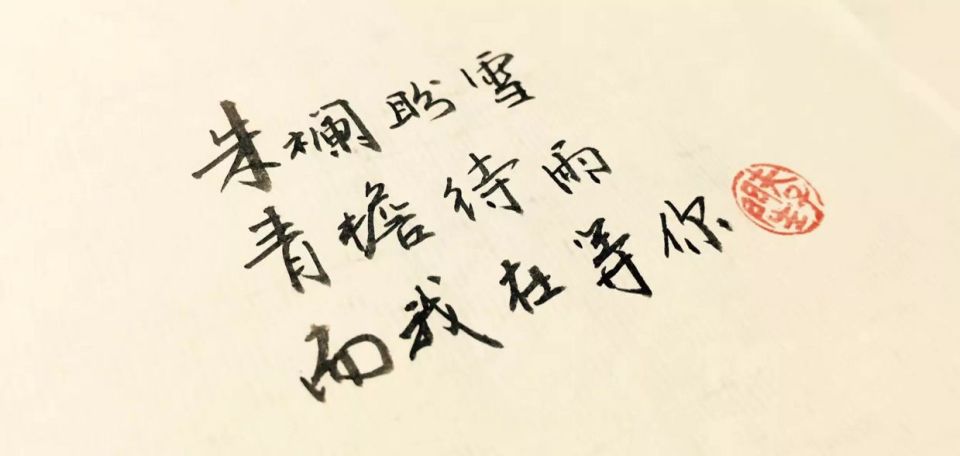 朱斓盼雪
青檐待雨
而我在等你